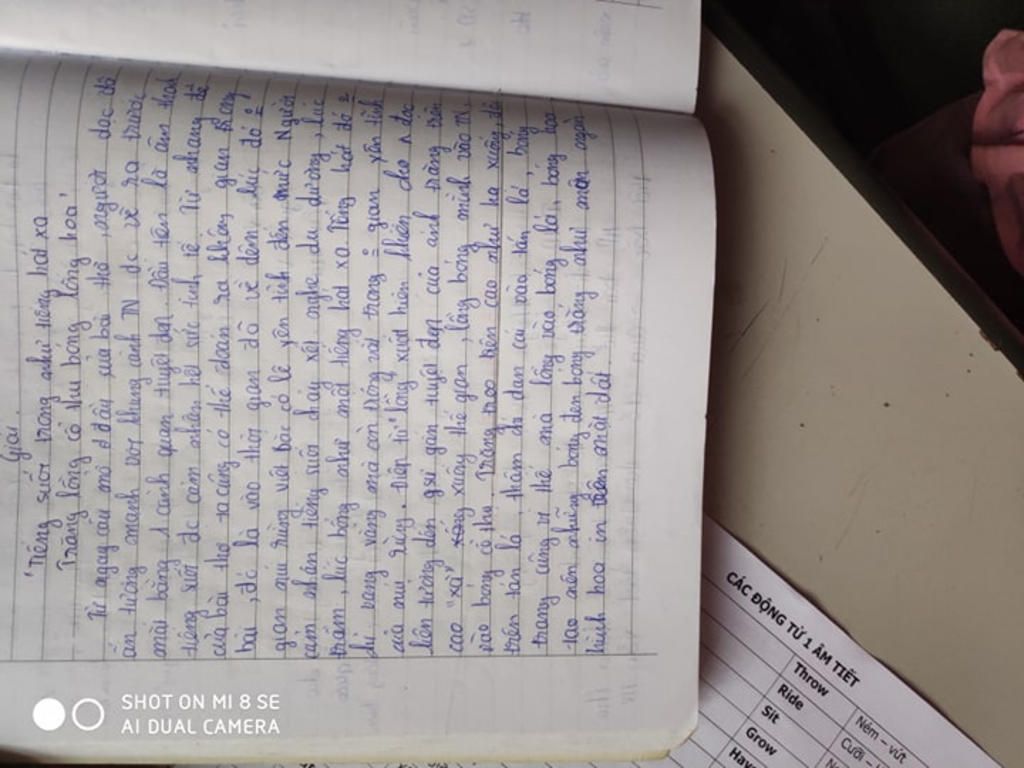 Giải
"Tiếng suối trong như tiếng hát xa
Trăng lồng cổ thụ bóng lồng hoa"
Từ ngay câu mở ở đầu của bài thơ, người đọc đã
ấn tượng mạnh với khung cảnh TN đc vẽ ra trước
mắt bằng 1 cảnh quan tuyệt đẹp. Đầu tên là âm thanh
tiếng suối đc cảm nhận hết sức tinh tế. Từ nhang đề
của bài thơ ta cũng có thể đoán ra không gian trong
bài, đó là vào thời gian đã về đêm, lúc đó =
gian núi rừng việt Bắc có lẽ yên tĩnh đến mức Người
cảm nhận tiếng suối chảy rất nghe du dương, lúc
trầm, lúc bổng như một tiếng hát xa. Tiếng hát đó =
chỉ vang vọng mà còn trong vắt trong = gian yên tĩnh
của núi rừng. Điệp từ "lồng" xuất hiện khiến cho n đọc
liên tưởng đến sự gắn tuyệt đẹp của ánh trăng trên
cao "xà" xuống thế gian, lồng bóng mình vào
vào bóng cổ thụ. Trăng treo trên cao như hạ xuống để
trên tán lá thêm đan cài vào tán lá, bóng
trăng cũng vì thế mà lồng vào bóng lá, bóng hoa
tạo nên những bóng đen bóng trắng như muôn ngàn
hình hoa in trên mặt đất.
CÁC ĐỘNG TỪ 1 ÂM TIẾT
Throw
Ném – vứt
Ride
Cưỡi –
Sit
Grow
SHOT ON MI 8 SE
AI DUAL CAMERA